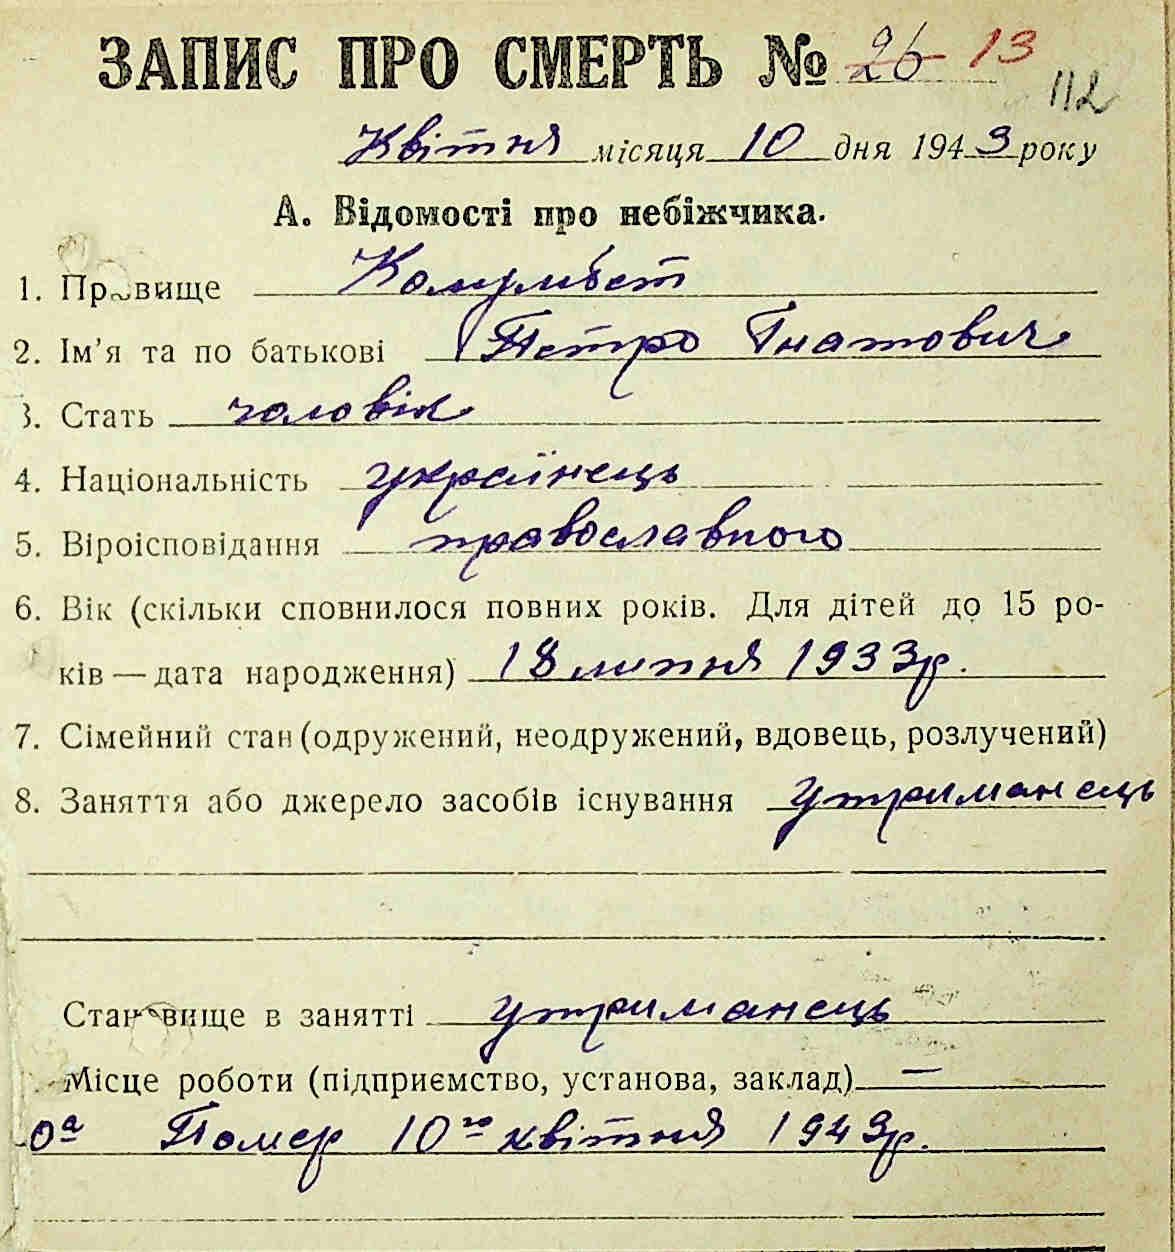 ЗАПИС ПРО СМЕРТЬ № 26 13
112
Квітня місяця 10 дня 1943 року
А. Відомості про небіжчика.
1. Прізвище Колумбет
2. Ім'я та по батькові Петро Гнатович
3. Стать чоловік
4. Національність українець
5. Віроісповідання православного
6. Вік (скільки сповнилося повних років. Для дітей до 15 ро-
ків — дата народження) 18 липня 1933р.
7. Сімейний стан (одружений, неодружений, вдовець, розлучений)
8. Заняття або джерело засобів існування утриманець
Становище в занятті утриманець
Місце роботи (підприємство, установа, заклад) —
Помер 10го квітня 1943р.